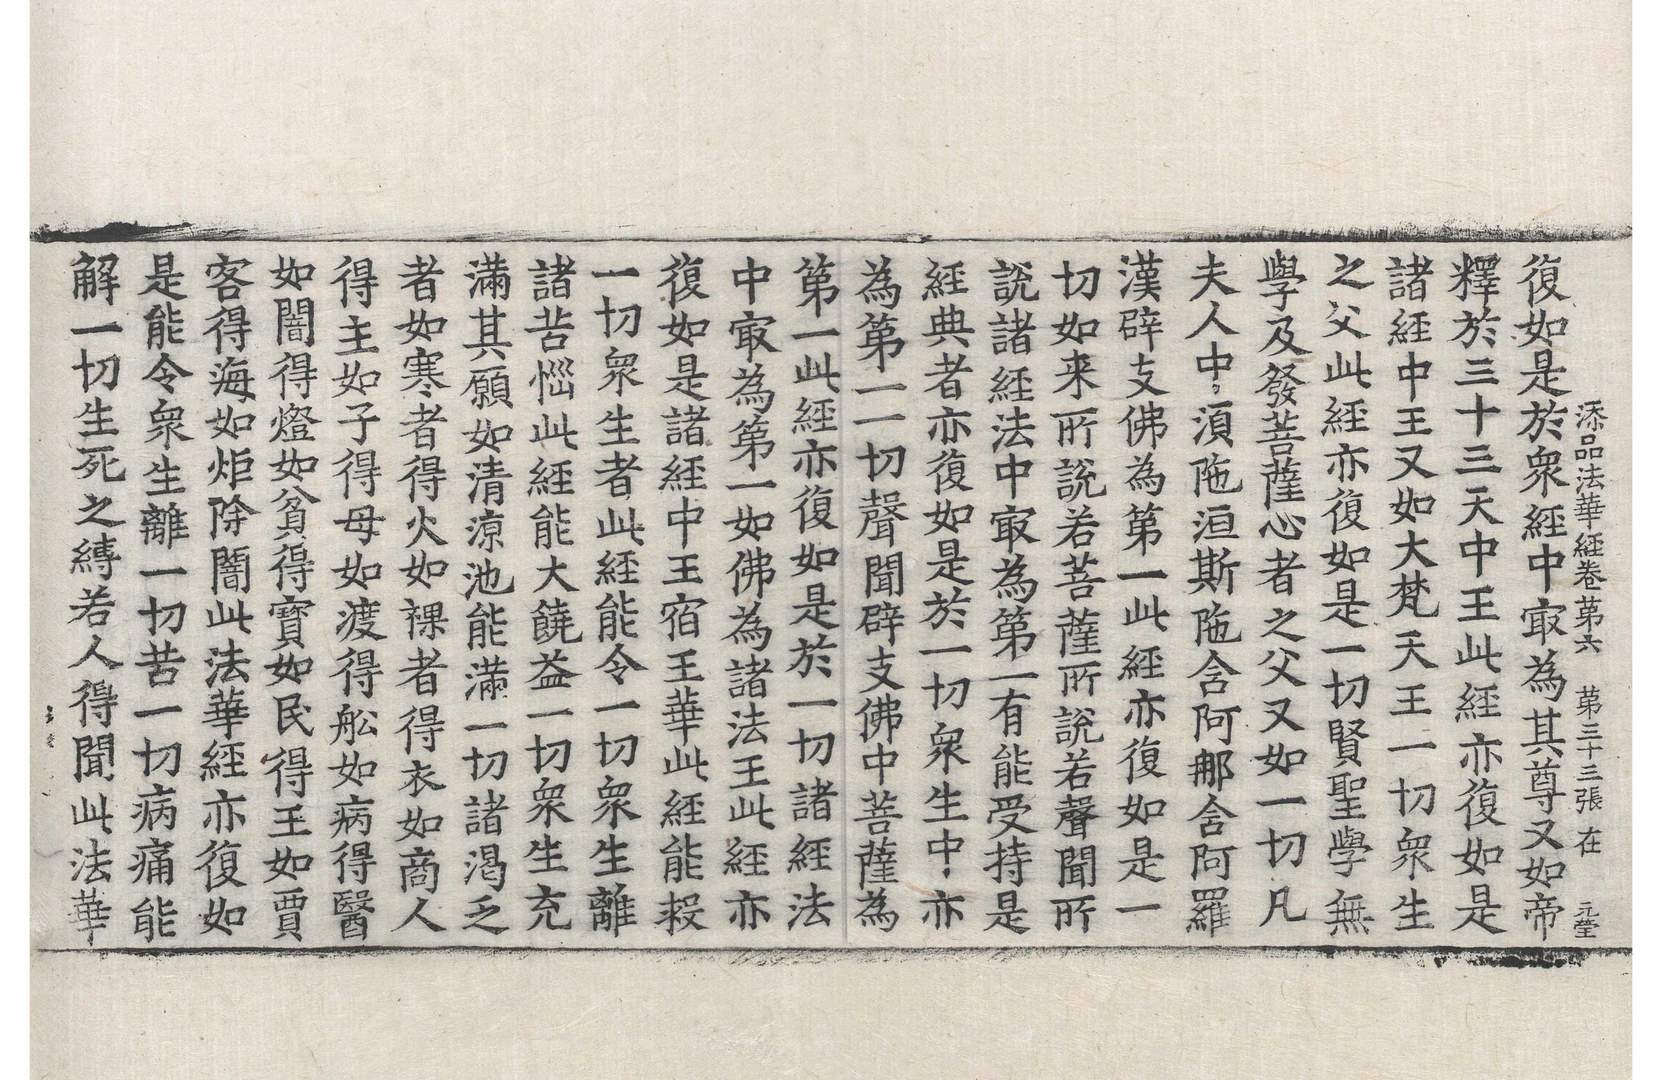 添品法華經卷第六 第三十三張 在
復如是於衆經中冣為其尊又如帝
釋於三十三天中王此經亦復如是
諸經中王又如大梵天王一切衆生
之父此經亦復如是一切賢聖學無
學及發菩薩心者之父又如一切凡
夫人中湏陁洹斯陁含阿那含阿羅
漢辟支佛為第一此經亦復如是一
切如来所說若菩薩所說若聲聞所
說諸經法中冣為第一有能受持是
經典者亦復如是於一切衆生中亦
為第一一切聲聞辟支佛中菩薩為
第一此經亦復如是於一切諸經法
中冣為第一如佛為諸法王此經亦
復如是諸經中王宿王華此經能救
一切衆生者此經能令一切衆生離
諸苦惱此經能大饒益一切衆生充
滿其願如清凉池能滿一切諸渴乏
者如寒者得火如裸者得衣如商人
得主如子得母如渡得舩如病得醫
如闇得燈如貧得寶如民得王如賈
客得海如炬除闇此法華經亦復如
是能令衆生離一切苦一切病痛能
解一切生死之縛若人得聞此法華